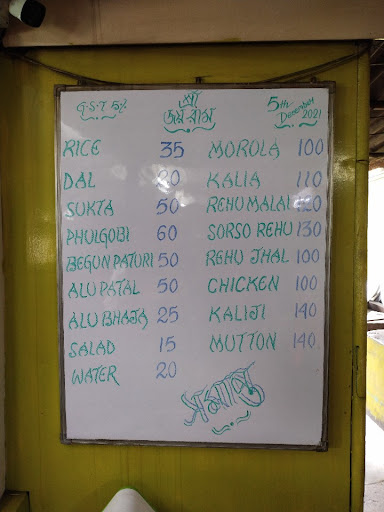 G.S.T 5%
শ্রী
জয় রাম
5th December 2021
RICE 35
DAL 20
SUKTA 50
PHULGOBI 60
BEGUN PATURI 50
ALU PATAL 50
ALU BHAJA 25
SALAD 15
WATER 20
MOROLA 100
KALIA 110
REHU MALAI 120
SORSO REHU 130
REHU JHAL 100
CHICKEN 100
KALIJI 140
MUTTON 140